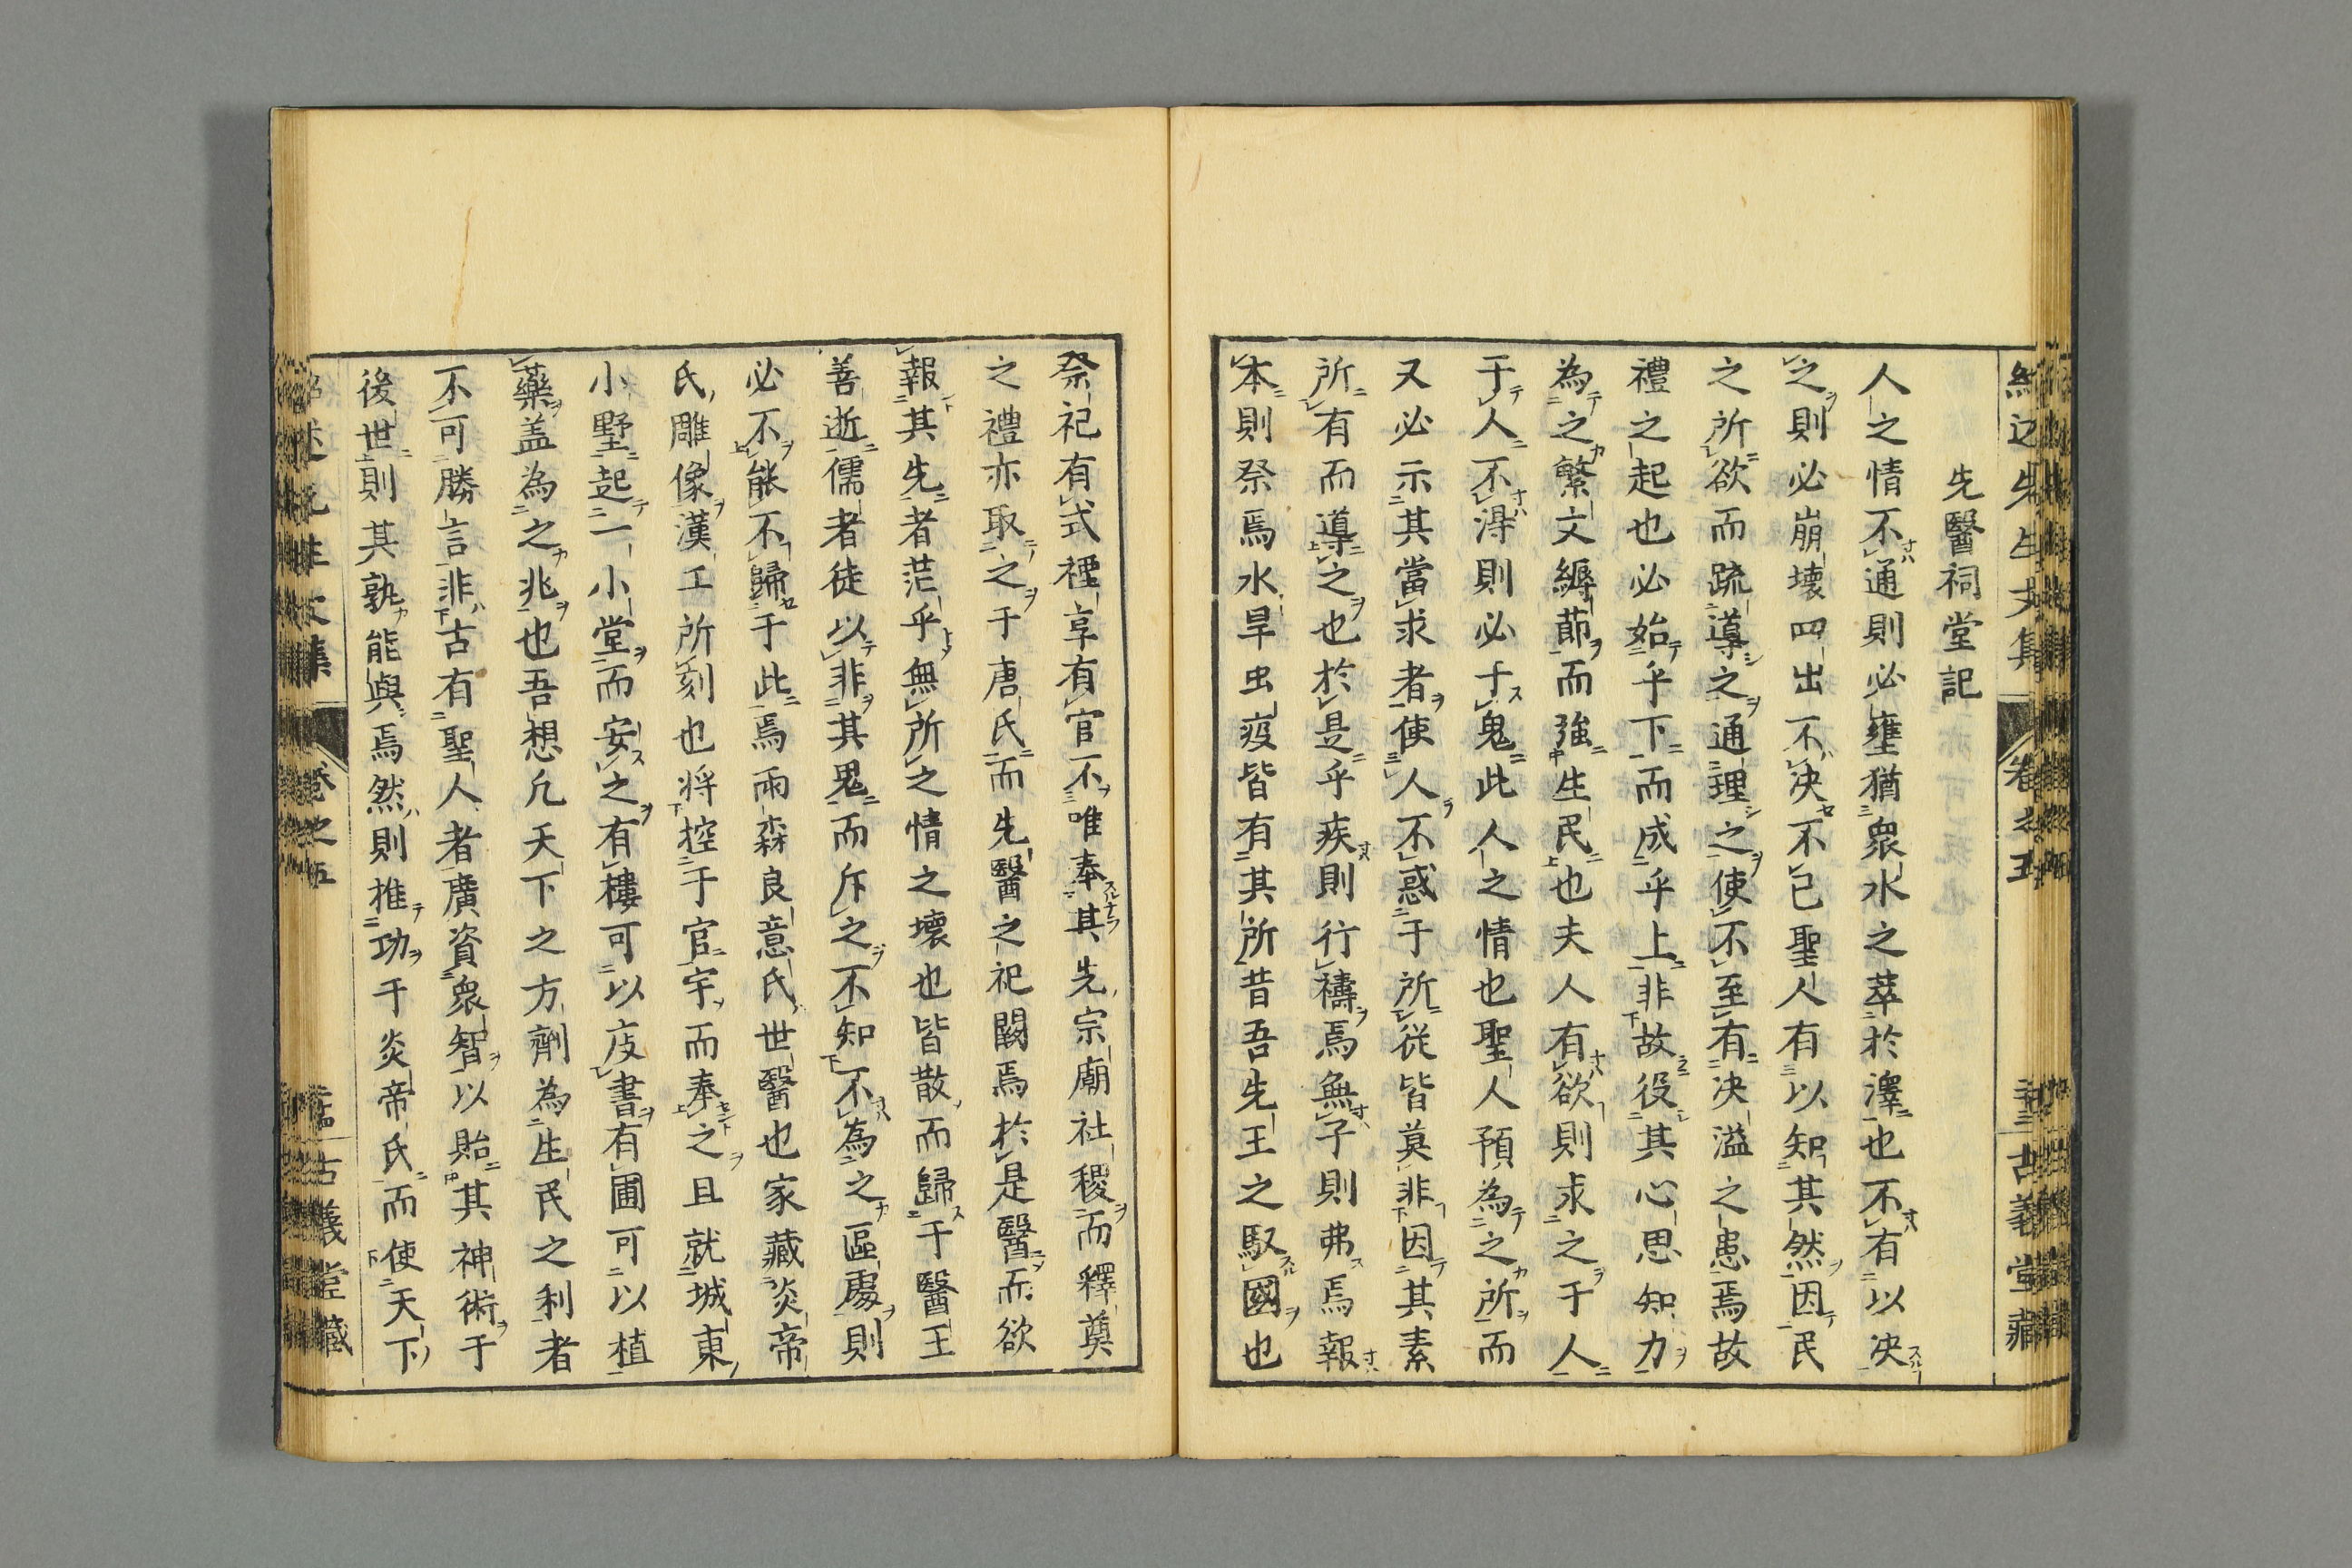 先醫祠堂記
人之情不通則必壅猶衆水之萃於澤也不有以决
之則必崩壞四出不决不已聖人有以知其然因民
之所欲而疏導之通理之使不至有决溢之患焉故
禮之起也必始乎下而成乎上非故役其心思知力
為之繁文縟莭而強生民也夫人有欲則求之于人
于人不淂則必于鬼此人之情也聖人預為之所而
又必示其當求者使人不惑于所従皆莫非因其素
所有而導之也於是乎疾則行禱焉無子則弗焉報
本則祭焉水旱虫疫皆有其所昔吾先王之馭國也
祭祀有式禋享有官不唯奉其先宗廟社稷而釋奠
之禮亦取之于唐氏而先醫之祀闕焉於是醫而欲
報其先者茫乎無所之情之壞也皆散而歸于醫王
善逝儒者徒以非其鬼而斥之不知不為之區處則
必不能不歸于此焉雨森良意氏世醫也家藏炎帝
氏雕像漢工所刻也将控于官宇而奉之且就城東
小墅起一小堂而安之有樓可以庋書有圃可以植
藥盖為之兆也吾想凡天下之方劑為生民之利者
不可勝言非古有聖人者廣資衆智以貽其神術于
後世則其孰能與焉然則推功于炎帝氏而使天下
卷之五
古義堂藏